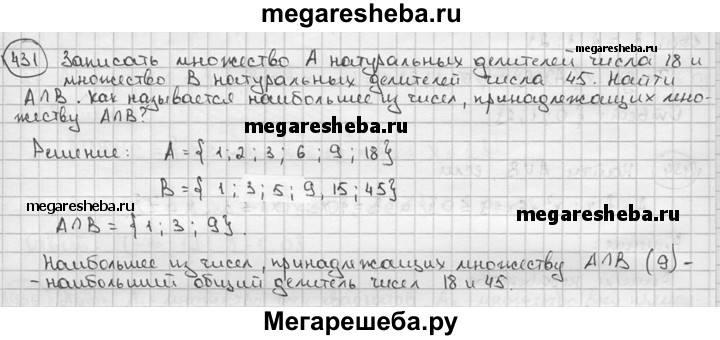 megaresheba.ru
431 Записать множество А натуральных делителей числа 18 и
множество В натуральных делителей числа 45. Найти
А∩В. Как называется наибольшее из чисел, принадлежащих мно-
жеству А∩В?
megaresheba.ru
megaresheba.ru
Решение: А = { 1; 2; 3; 6; 9; 18}
В = { 1; 3; 5; 9, 15; 45}
megaresheba.ru
megaresheba.ru
А∩В = {1; 3; 9}.
Наибольшее из чисел, принадлежащих множеству А∩В (9) -
- наибольший общий делитель чисел 18 и 45.
megaresheba.ru
Мегарешеба.ру